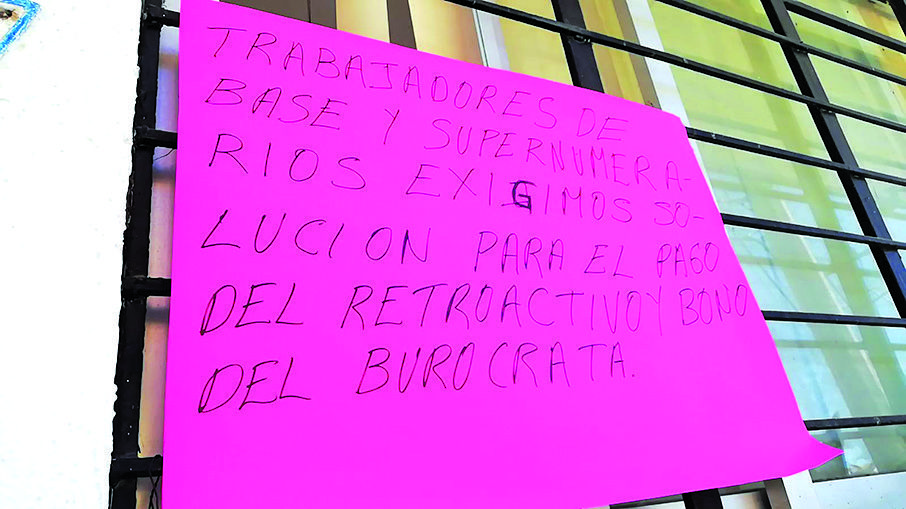 TRABAJADORES DE
BASE Y SUPERNUMERA-
RIOS EXIGIMOS SO-
LUCION PARA EL PAGO
DEL RETROACTIVO Y BONO
DEL BUROCRATA.